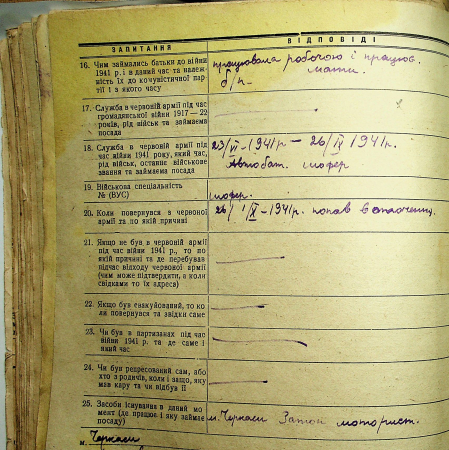 ЗАПИТАННЯ
ВІДПОВІДІ
16. Чим займались батьки до війни
1941 р. і в даний час та належ-
ність їх до комуністичної пар-
тії і з якого часу
працювала робочою і працює
мати.
б/п-
17. Служба в червоній армії під час
громадянської війни 1917—22
років, рід військ та займаема
посада
18. Служба в червоній армії під
час війни 1941 року, який час,
рід військ, останне військове
звання та займаема посада
23/VI-1941р — 26/IX 1941р.
Автобат. шофер
19. Військова спеціальність
№ (ВУС)
шофер.
20. Коли повернувся в червоної
армії та по якій причині
26/IX-1941р. попав в оточення.
21. Якщо не був в червоній армії
під час війни 1941 р., то по
якій причині та де перебував
підчас відходу червоної армії
(чим може підтвердити, а коли
свідками то їх адреса)
22. Якщо був евакуйований, то ко-
ли повернувся та звідки саме
23. Чи був в партизанах під час
війни 1941 р. та де саме і
який час
24. Чи був репресований сам, або
хто з родичів, коли і защо, яку
мав кару та чи відбув її
25. Засоби існування в даний мо-
мент (де працює і яку займає
посаду)
м. Черкаси Затон моторист.
м. Черкаси